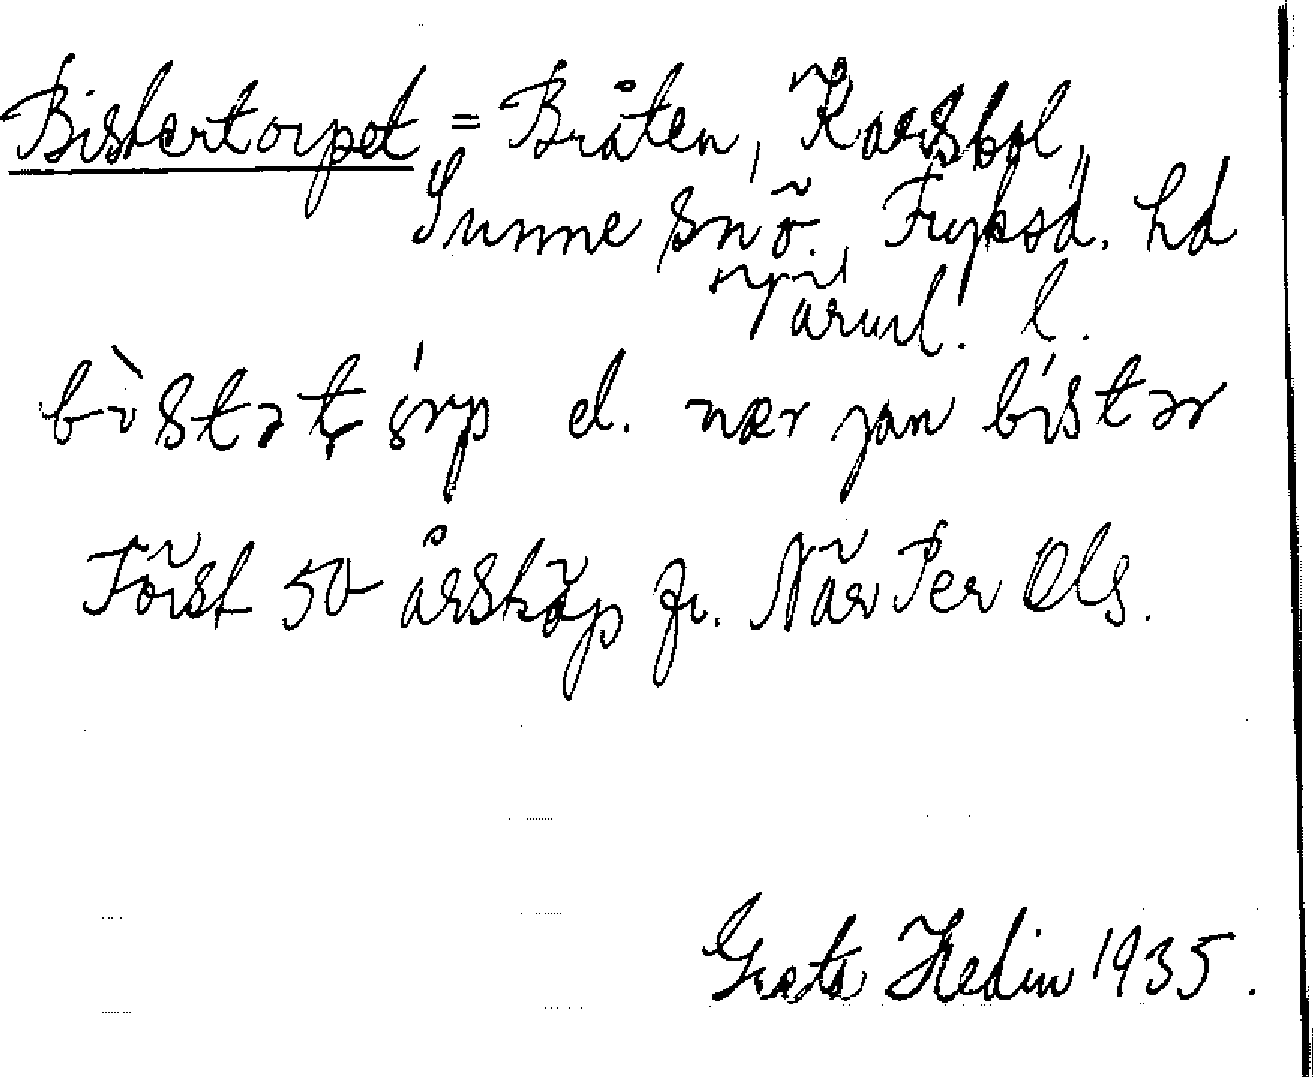 Bistertorpet = Bråten, Karsbol,
Sunne sn ö. Fryksd. hd
Värml. l.
bìstətórp el. nær jan bístər
Först 50 årsköp fr. När Per Ols.
Greta Hedin 1935.